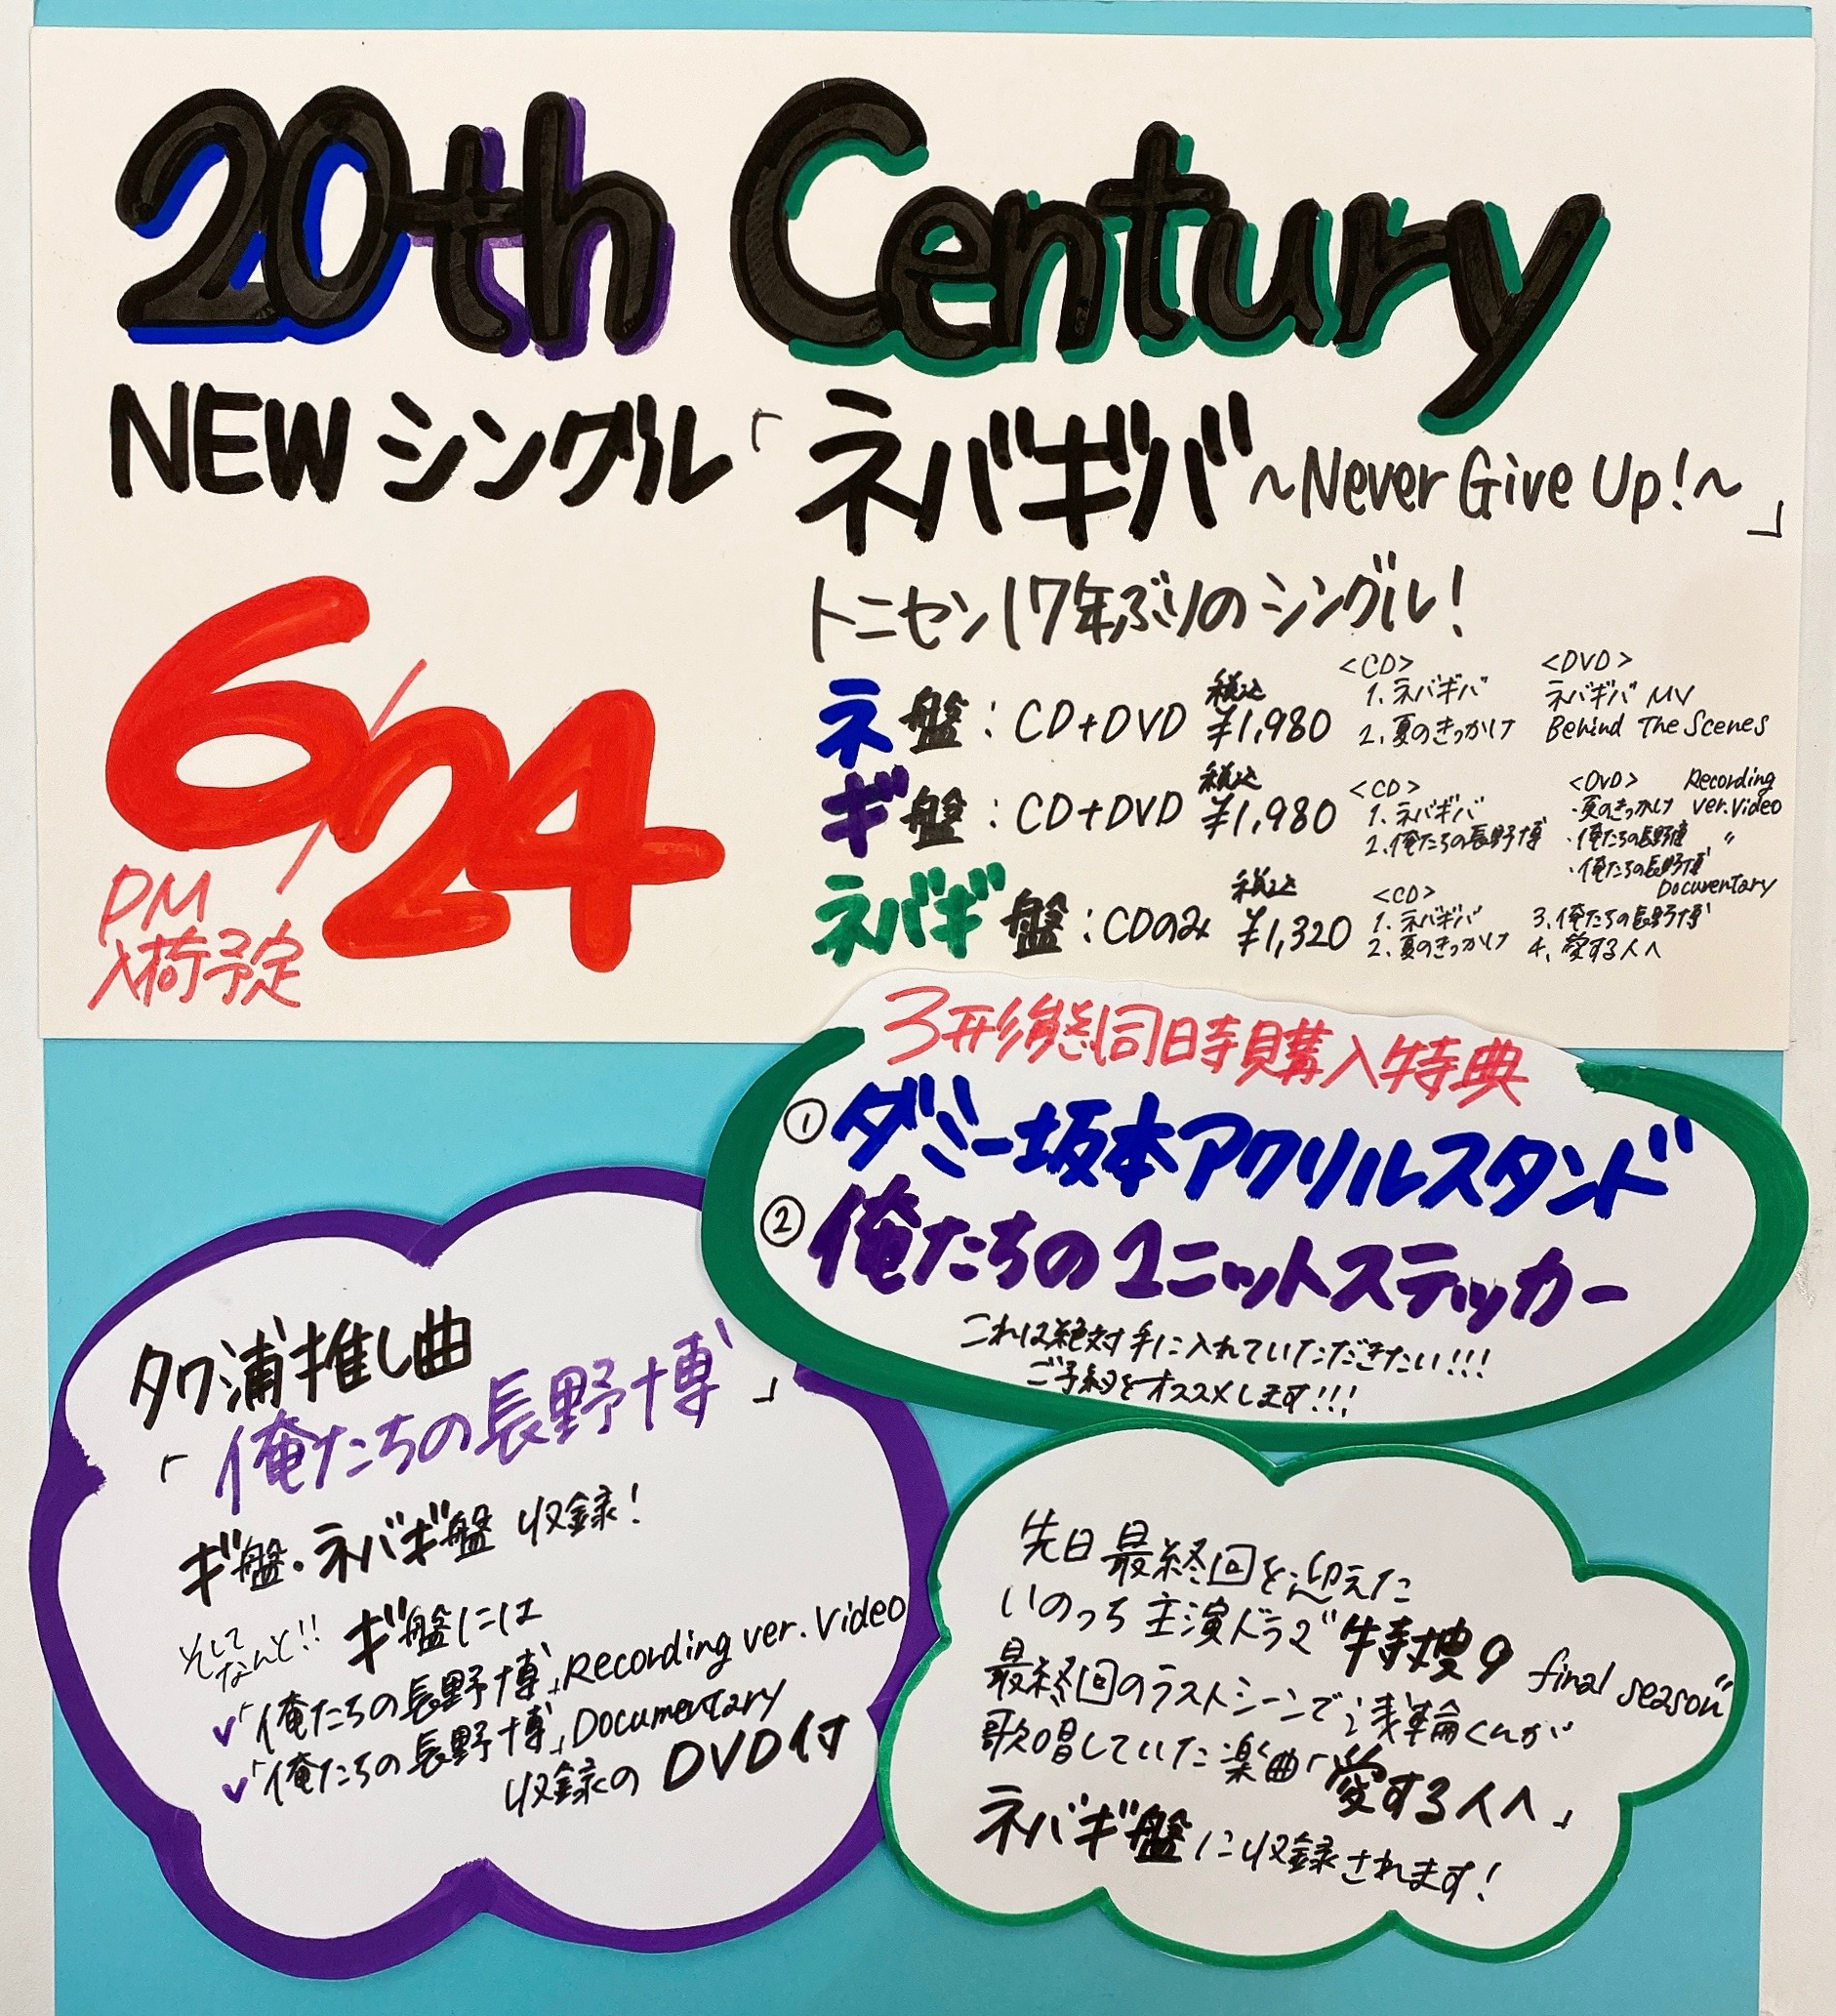 20th Century
NEW シングル「ネバギバ ～Never Give Up!～」
トニセン17年ぶりのシングル!
6/24
PM
入荷予定
ネ盤:CD+DVD 税込¥1,980
<CD>
1.ネバギバ
2.夏のきっかけ
<DVD>
ネバギバ MV
Behind The Scenes
ギ盤:CD+DVD 税込¥1,980
<CD>
1.ネバギバ
2.俺たちの長野博
<DVD> Recording
・夏のきっかけ ver.Video
・俺たちの長野博 〃
・俺たちの長野博
Documentary
ネバギ盤:CDのみ 税込¥1,320
<CD>
1.ネバギバ
2.夏のきっかけ
3.俺たちの長野博
4.愛する人へ
3形態同時購入特典
①ダミー坂本アクリルスタンド
②俺たちのユニットステッカー
これは絶対手に入れていただきたい!!!
ご予約をオススメします!!!
タワ浦推し曲
「俺たちの長野博」
ギ盤・ネバギ盤 収録!
そして
なんと!! ギ盤には
✓「俺たちの長野博」Recording ver. Video
✓「俺たちの長野博」Documentary
収録の DVD付
先日最終回を迎えた
いのっち主演ドラマ"特捜9 final season"
最終回のラストシーンで浅輪くんが
歌唱していた楽曲「愛する人へ」
ネバギ盤に収録されます!